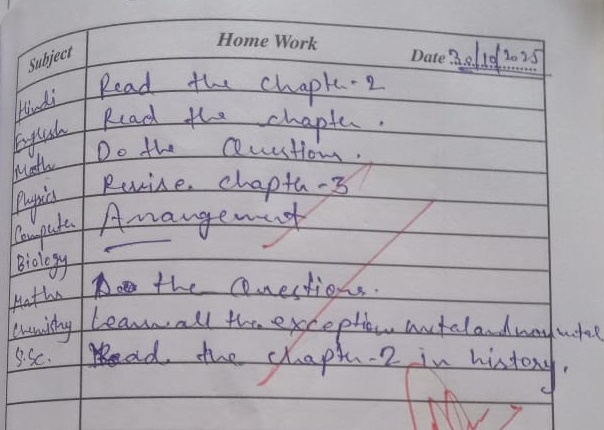 Subject Home Work Date 30/10/2025
Hindi Read the chapter-2
English Read the chapter.
Math Do the Questions.
Physics Revise chapter-3
Computer Arrangement
Biology
Maths Do the Questions.
Chemistry Learn all the exception metal and non metal
S.Sc. Read the chapter-2 in history.